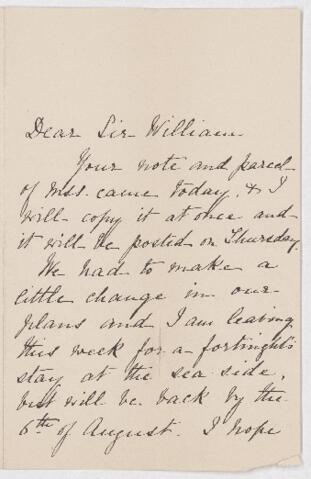 Dear Sir William
Your note and parcel
of mss. came today, & I
will copy it at once and
it will be posted on Thursday.
We had to make a
little change in our
plans and I am leaving
this week for a fortnight's
stay at the sea side,
but will be back by the
6th of August. I hope